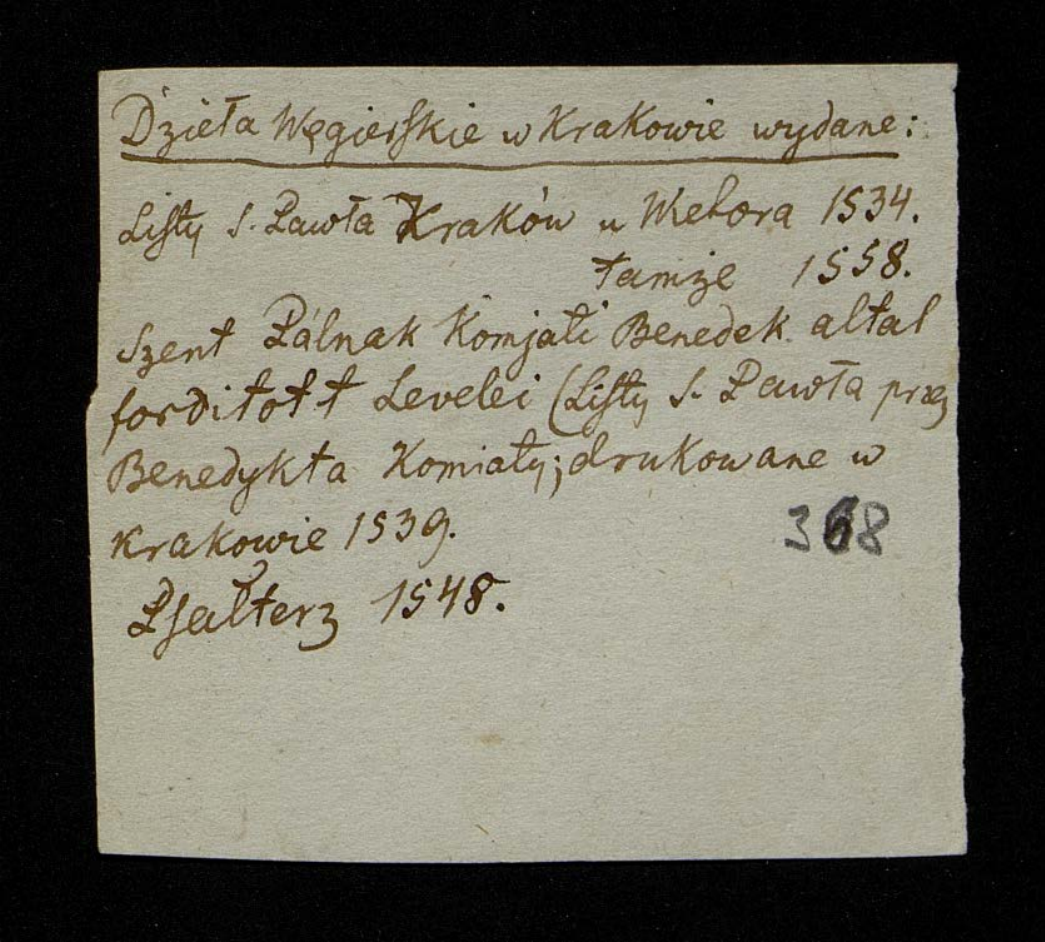 Dzieła Węgierskie w Krakowie wydane:
Listy S. Pawła Kraków u Wietora 1534.
tamże 1558.
Szent Pálnak Komjati Benedek altal
forditott Levelei (Listy S. Pawła przez
Benedykta Komiaty; drukowane w
Krakowie 1539.
368
Psałterz 1548.